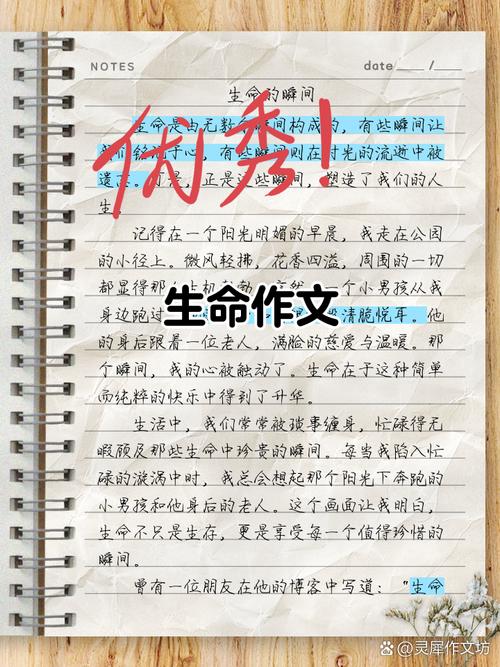 NOTES
date ___/___
生命的瞬间
生命是由无数个瞬间构成的,有些瞬间让
我们铭记于心,有些瞬间则在时光的流逝中被
遗忘。可是,正是这些瞬间,塑造了我们的人
生
优秀!
记得在一个阳光明媚的早晨,我走在公园
的小径上。微风轻拂,花香四溢,周围的一切
都显得那 机勃勃 一个小男孩从我
身边跑过 清脆悦耳。他
生命作文
的身后跟着一位老人,满脸的慈爱与温暖。那
个瞬间,我的心被触动了。生命在于这种简单
而纯粹的快乐中得到了升华。
生活中,我们常常被琐事缠身,忙碌得无
暇顾及那些生命中珍贵的瞬间。每当我陷入忙
碌的漩涡中时,我总会想起那个阳光下奔跑的
小男孩和他身后的老人。这个画面让我明白,
生命不只是生存,更是享受每一个值得珍惜的
瞬间。
曾有一位朋友在他的博客中写道:“生命
灵犀作文坊